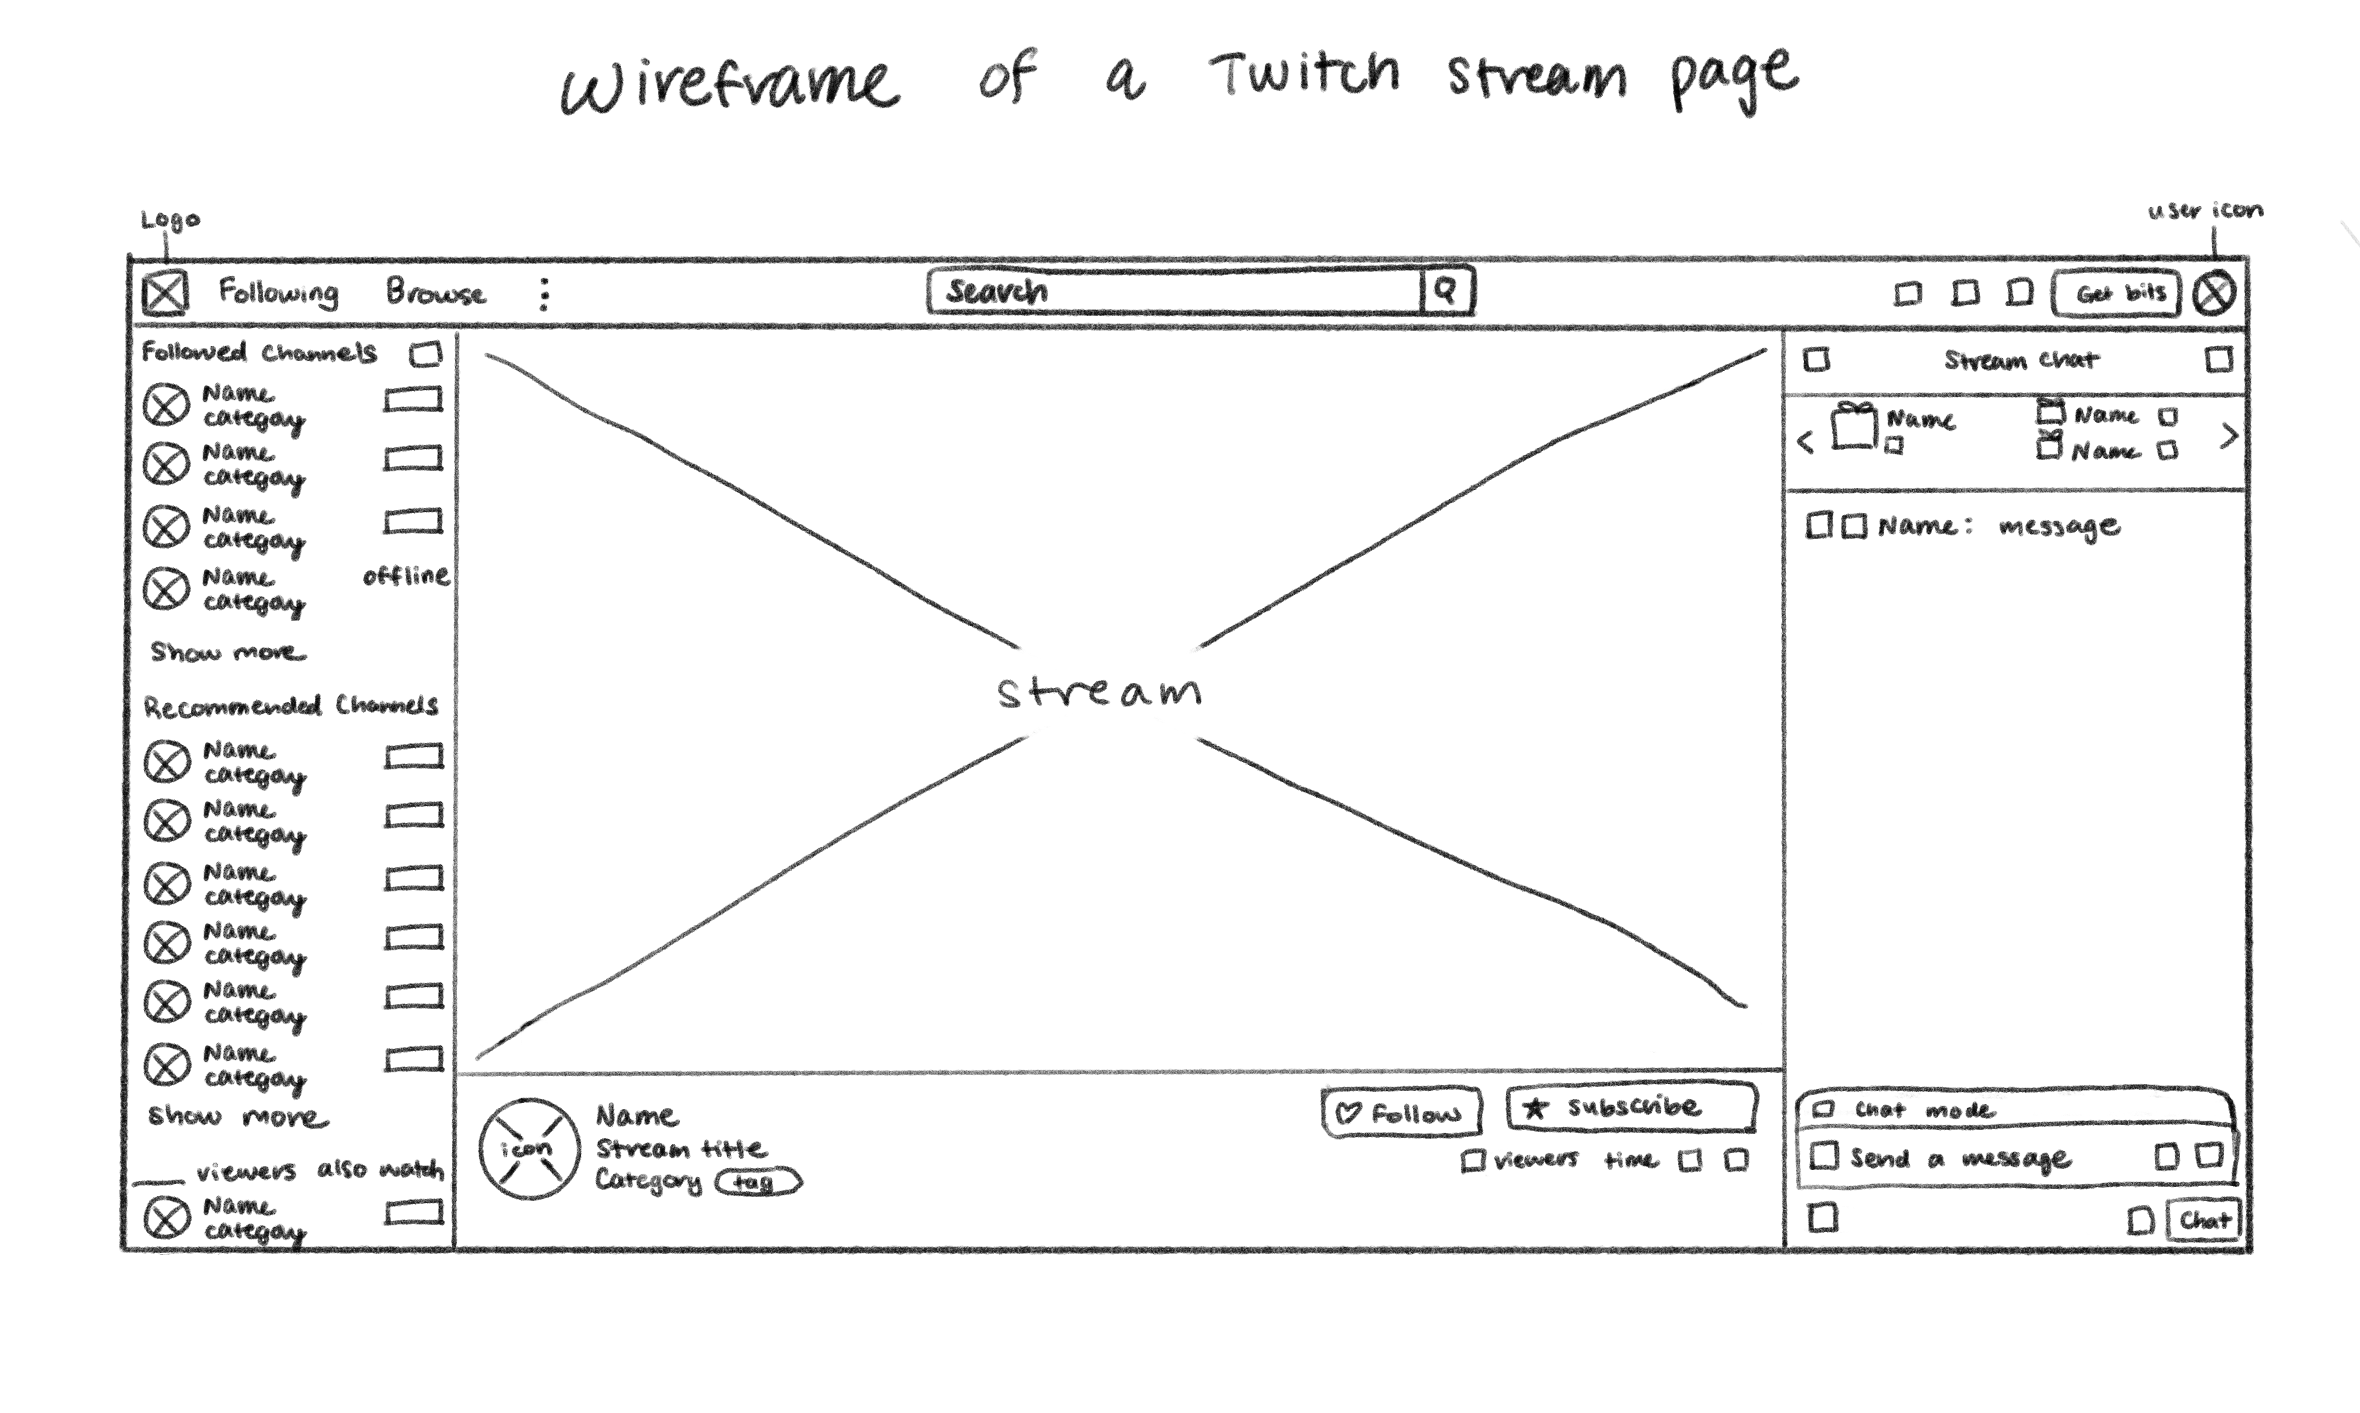 Wireframe of a Twitch stream page
Logo
user icon
Following Browse
Search
Get bits
Followed Channels
Name
category
Name
category
Name
category
Name
category
offline
Show more
Recommended Channels
Name
category
Name
category
Name
category
Name
category
Name
category
Name
category
Show more
____ viewers also watch
Name
category
stream
icon
Name
Stream title
Category tag
Follow
Subscribe
viewers time
Stream Chat
Name
Name
Name
Name: message
Chat mode
Send a message
Chat